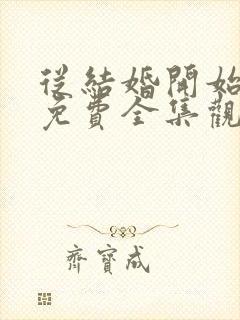 從結婚開始
免費全集觀
齊寶成